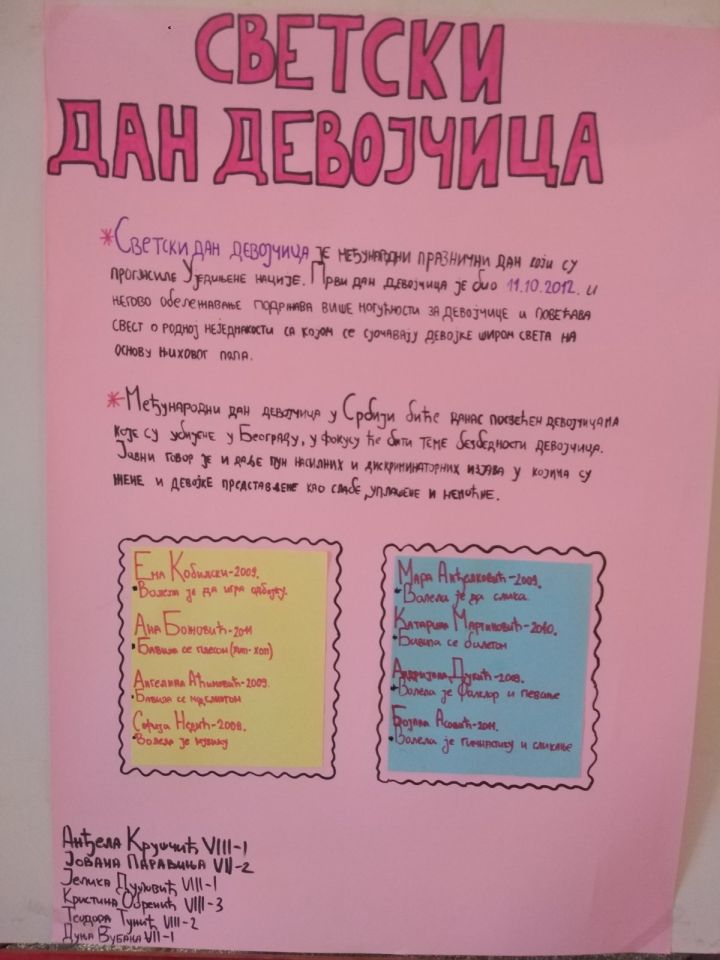 СВЕТСКИ
ДАН ДЕВОЈЧИЦА
*Светски дан девојчица је међународни празнични дан који су
прогласиле Уједињене нације. Први дан девојчица је био 11.10.2012. и
његово обележавање подржава више могућности за девојчице и повећава
свест о родној неједнакости са којом се суочавају девојке широм света на
основу њиховог пола.
*Међународни дан девојчица у Србији биће данас посвећен девојчицама
које су убијене у Београду, у фокусу ће бити теме безбедности девојчица.
Јавни говор је и даље пун насилних и дискриминаторних изјава у којима су
жене и девојке представљене као слабе, уплашене и немоћне.
Ема Кобиљски-2009.
•Волела је да игра одбојку.
Ана Божовић-2011
•Бавила се плесом (хип-хоп)
Ангелина Аћимовић-2009.
•Бавила се
Софија Недић-2008.
•Волела је музику
Мара Анђелковић-2009.
•Волела је да слика.
Катарина Мартиновић-2010.
•Бавила се балетом
Андријана Дукић-2009.
•Волела је фолклор и певање
Бојана Асовић-2011.
•Волела је гимнастику и сликање
Анђела Крушчић VIII-1
Јована Паравиња VII-2
Јелика VIII-1
Кристина Обренић VIII-3
Теодора Тунић VIII-2
Дуња Вубана VII-1